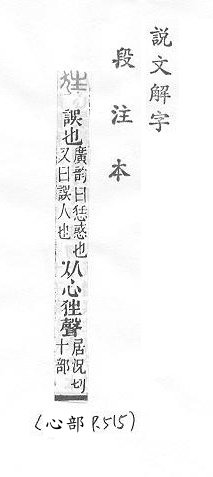 說文解字
段注本
誤也廣韵曰㤮惑也
又曰誤人也
从心狂聲居況切
十部
(心部 P.515)